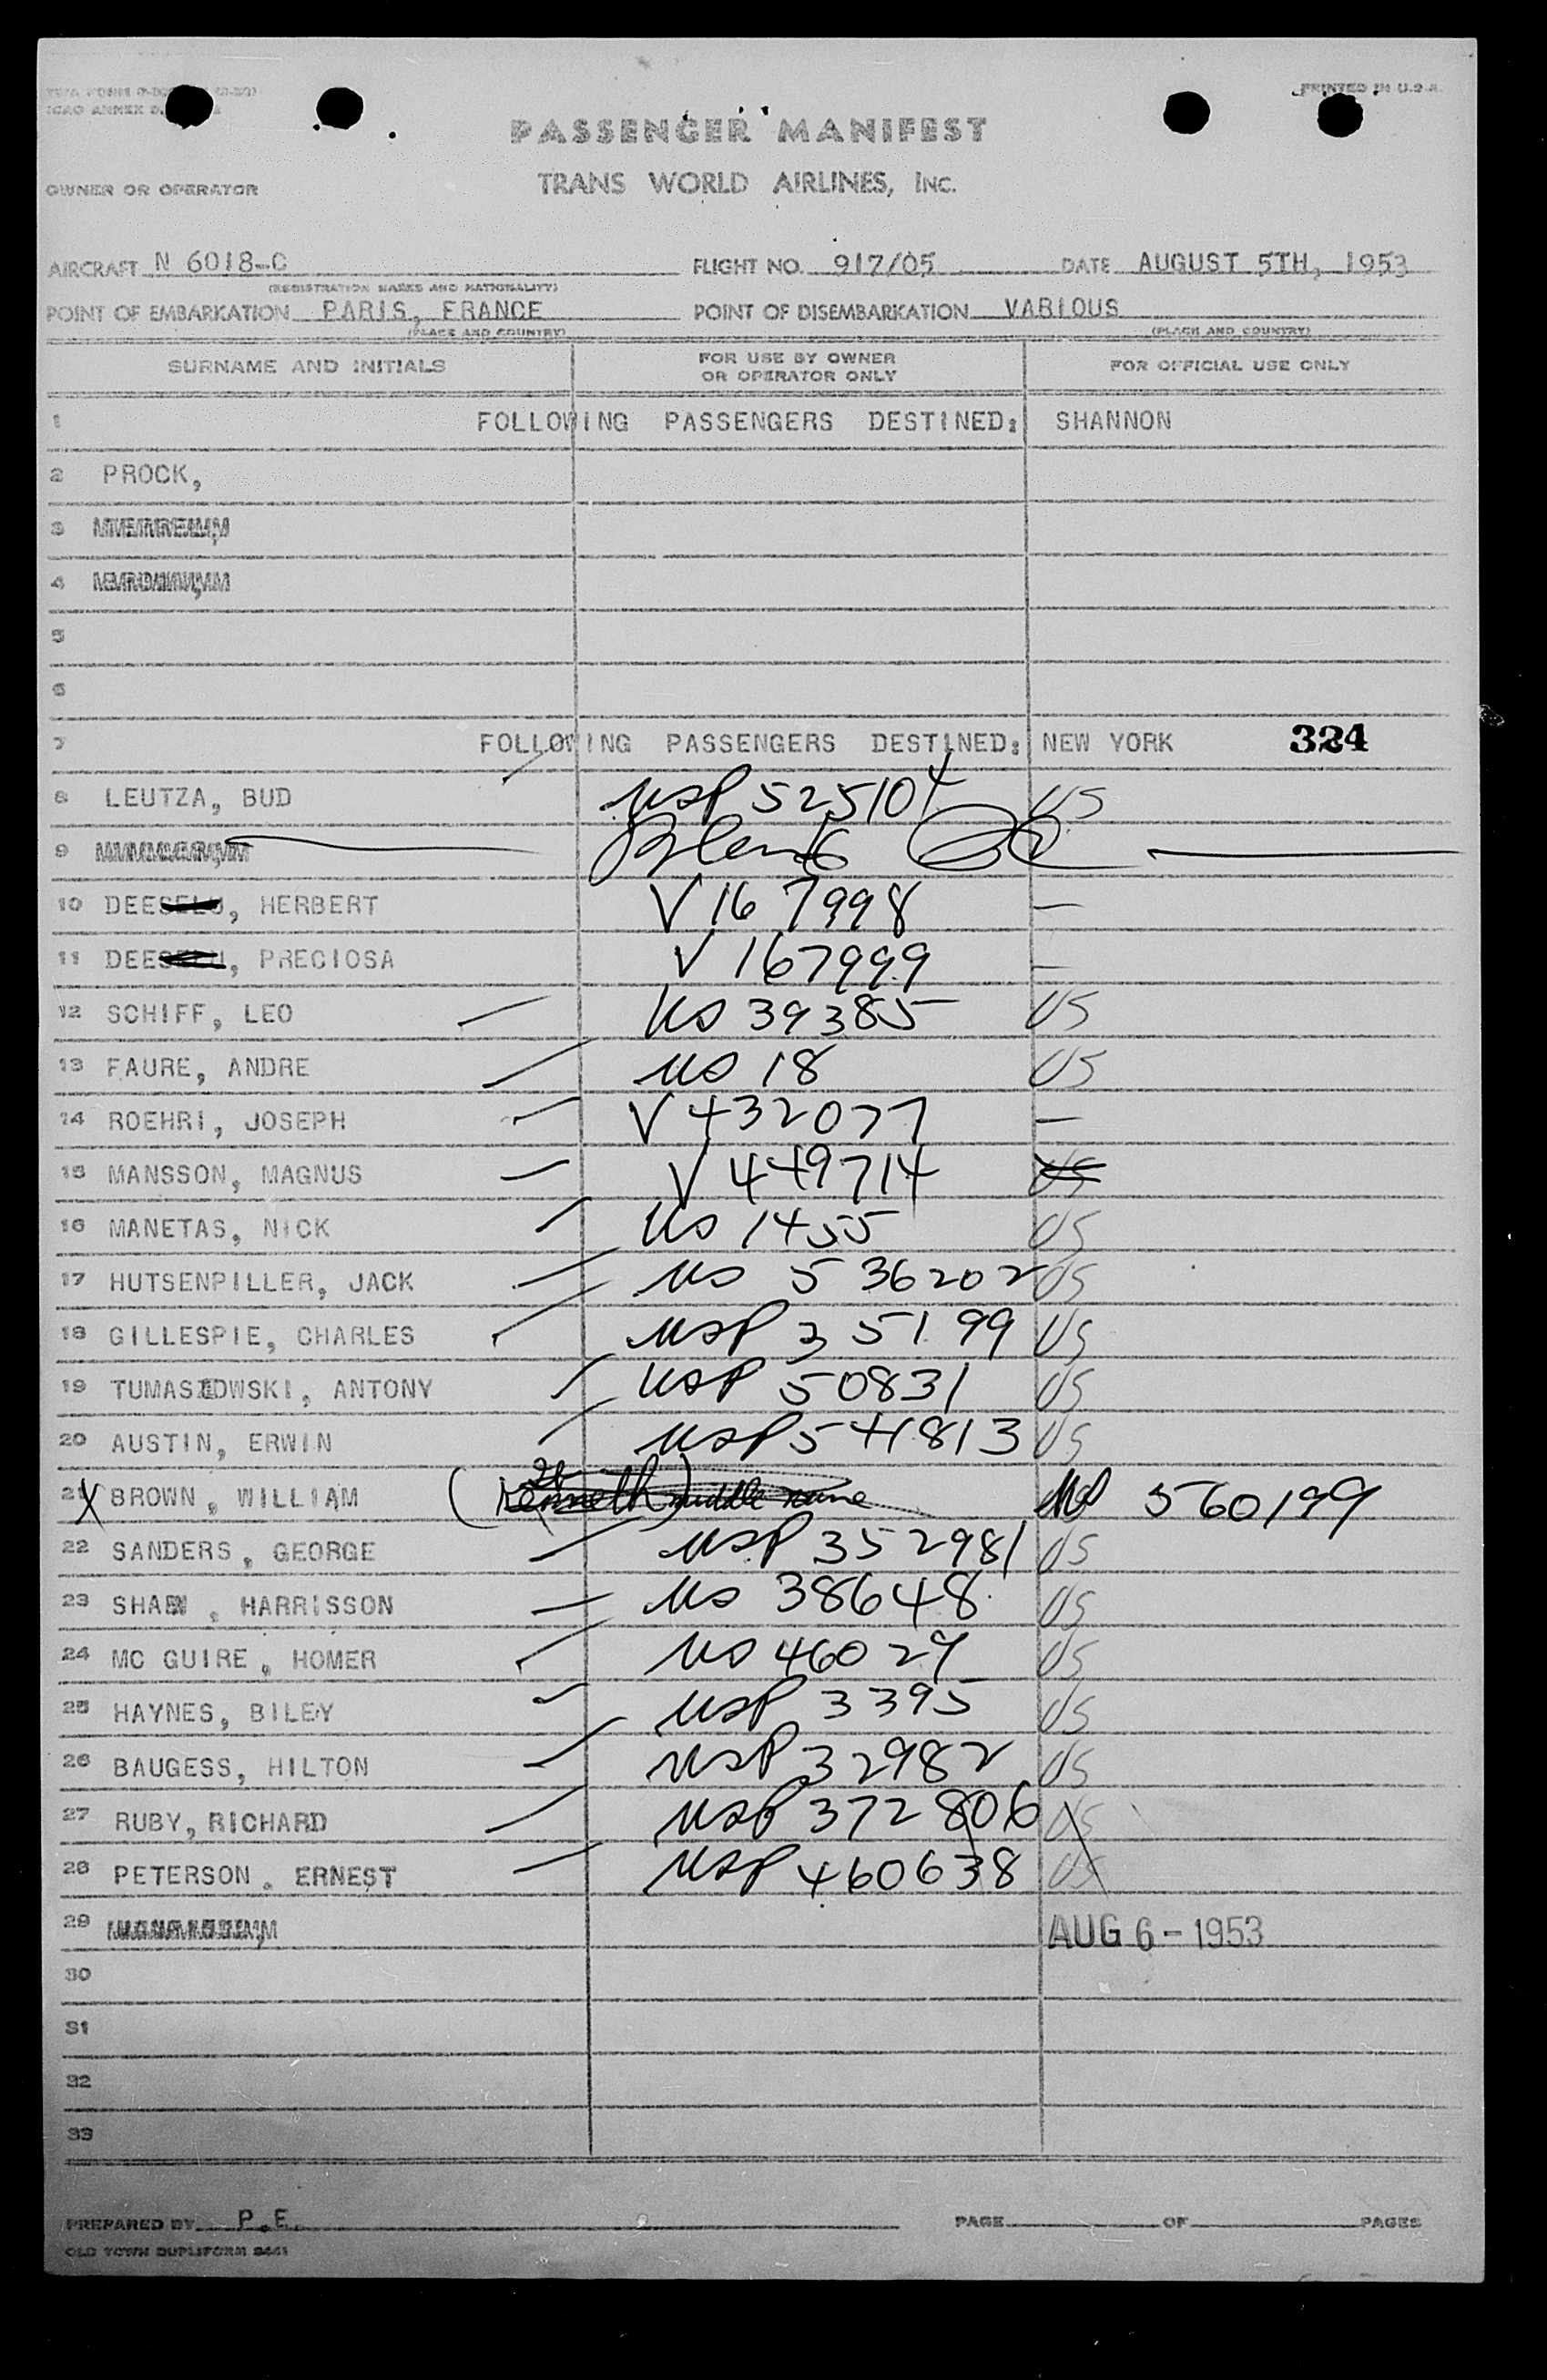 TWA FORM
ICAO ANNEX
PRINTED IN U.S.A.
PASSENGER MANIFEST
OWNER OR OPERATOR TRANS WORLD AIRLINES, INC.
AIRCRAFT N 6018-C FLIGHT NO. 917/05 DATE AUGUST 5TH, 1953
(REGISTRATION MARKS AND NATIONALITY)
POINT OF EMBARKATION PARIS, FRANCE POINT OF DISEMBARKATION VARIOUS
(PLACE AND COUNTRY) (PLACE AND COUNTRY)
SURNAME AND INITIALS FOR USE BY OWNER OR OPERATOR ONLY FOR OFFICIAL USE ONLY
1 FOLLOWING PASSENGERS DESTINED: SHANNON
2 PROCK,
3
4
5
6
7 FOLLOWING PASSENGERS DESTINED: NEW YORK 324
8 LEUTZA, BUD USP 525104 US
9 Blank
10 DEE, HERBERT V 167998 —
11 DEE, PRECIOSA V 167999 —
12 SCHIFF, LEO US 39385 US
13 FAURE, ANDRE US 18 US
14 ROEHRI, JOSEPH V 432077 —
15 MANSSON, MAGNUS V 449714 US
16 MANETAS, NICK US 1455 US
17 HUTSENPILLER, JACK US 536202 US
18 GILLESPIE, CHARLES USP 35199 US
19 TUMASZOWSKI, ANTONY USP 50831 US
20 AUSTIN, ERWIN USP 541813 US
21 X BROWN, WILLIAM (Kenneth) middle name 560199
22 SANDERS, GEORGE USP 352981 US
23 SHAW, HARRISSON US 38648 US
24 MC GUIRE, HOMER US 46029 US
25 HAYNES, BILEY USP 3395 US
26 BAUGESS, HILTON USP 32982 US
27 RUBY, RICHARD USP 372806 US
28 PETERSON, ERNEST USP 460638 US
29 AUG 6 - 1953
30
31
32
33
PREPARED BY P.E. PAGE OF PAGES
OLD TOWN DUPLIFORM 8441